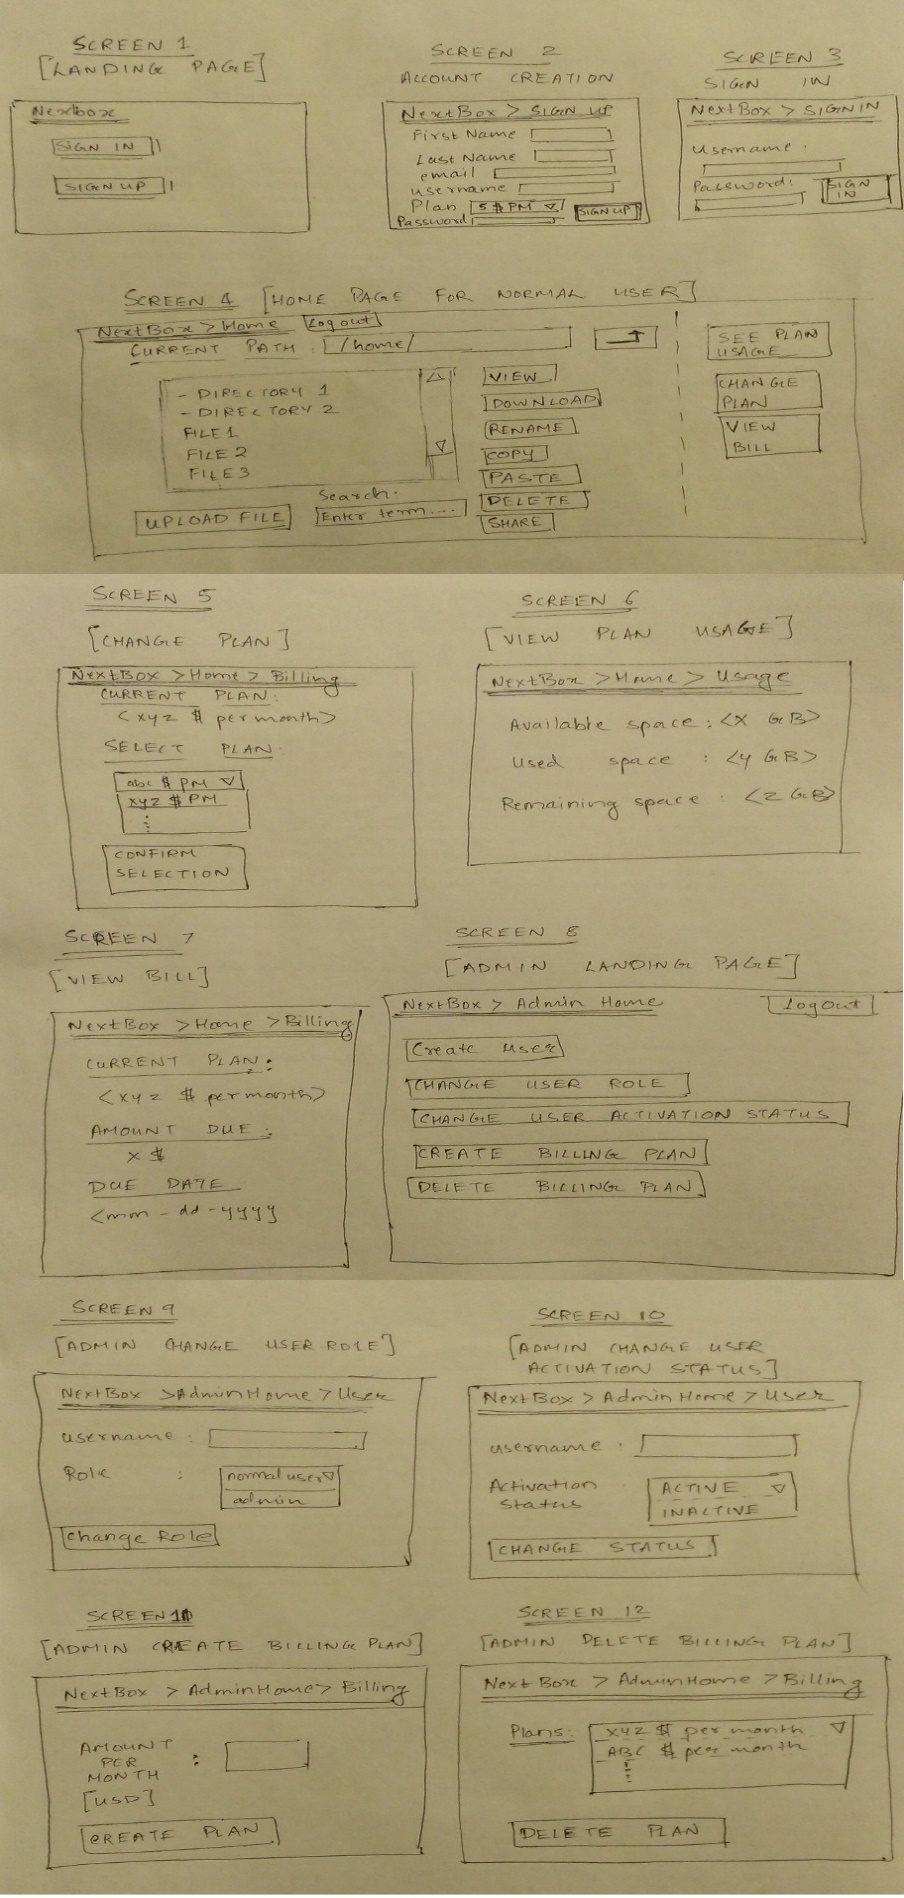 SCREEN 1
[LANDING PAGE]
Nextbox
SIGN IN
SIGN UP
SCREEN 2
ACCOUNT CREATION
NextBox > SIGN UP
First Name
Last Name
email
username
Plan 5 $ PM
Password SIGN UP
SCREEN 3
SIGN IN
NextBox > SIGN IN
Username :
Password:
SIGN
IN
SCREEN 4 [HOME PAGE FOR NORMAL USER]
NextBox > Home Logout
CURRENT PATH : /home/
- DIRECTORY 1
- DIRECTORY 2
FILE 1
FILE 2
FILE 3
UPLOAD FILE
Search:
Enter term....
VIEW
DOWNLOAD
RENAME
COPY
PASTE
DELETE
SHARE
SEE PLAN
USAGE
CHANGE
PLAN
VIEW
BILL
SCREEN 5
[CHANGE PLAN]
NextBox > Home > Billing
CURRENT PLAN:
<xyz $ per month>
SELECT PLAN:
abc $ PM
xyz $ PM
CONFIRM
SELECTION
SCREEN 6
[VIEW PLAN USAGE]
NextBox > Home > Usage
Available space : <X GB>
Used space : <Y GB>
Remaining space : <Z GB>
SCREEN 7
[VIEW BILL]
NextBox > Home > Billing
CURRENT PLAN:
<xyz $ per month>
AMOUNT DUE :
X $
DUE DATE
<mm - dd - yyyy
SCREEN 8
[ADMIN LANDING PAGE]
NextBox > Admin Home LogOut
Create User
CHANGE USER ROLE
CHANGE USER ACTIVATION STATUS
CREATE BILLING PLAN
DELETE BILLING PLAN
SCREEN 9
[ADMIN CHANGE USER ROLE]
NextBox > AdminHome > User
username :
Role : normal user
admin
Change Role
SCREEN 10
[ADMIN CHANGE USER
ACTIVATION STATUS]
NextBox > AdminHome > User
username :
Activation
Status
ACTIVE
INACTIVE
CHANGE STATUS
SCREEN 11
[ADMIN CREATE BILLING PLAN]
NextBox > AdminHome > Billing
AMOUNT
PER :
MONTH
[USD]
CREATE PLAN
SCREEN 12
[ADMIN DELETE BILLING PLAN]
NextBox > AdminHome > Billing
Plans: XYZ $ per month
ABC $ per month
DELETE PLAN